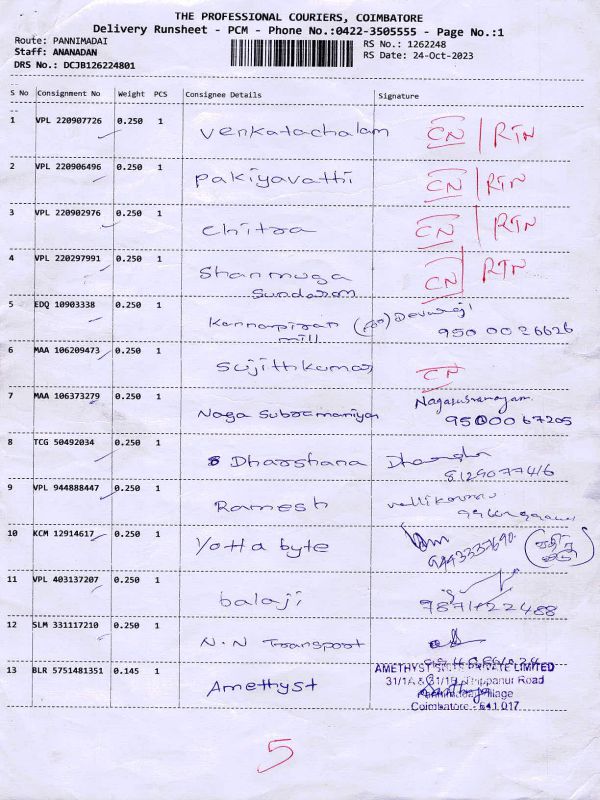 THE PROFESSIONAL COURIERS, COIMBATORE
Delivery Runsheet - PCM - Phone No.:0422-3505555 - Page No.:1
Route: PANNIMADAI RS No.: 1262248
Staff: ANANADAN RS Date: 24-Oct-2023
DRS No.: DCJB126224801
S No Consignment No Weight PCS Consignee Details Signature
1 VPL 220907726 0.250 1 Venkatachalam CN | RTN
2 VPL 220906496 0.250 1 Pakiyavathi CN | RTN
3 VPL 220902976 0.250 1 Chitra CN | RTN
4 VPL 220297991 0.250 1 Shanmuga CN | RTN
Sundaram
5 EDQ 10903338 0.250 1 Kannapiran Devaraji
mill 950 0026626
6 MAA 106209473 0.250 1 Sujithkumar CN
7 MAA 106373279 0.250 1 Naga Subramaniyan Nagasubramaniyam
9500067205
8 TCG 50492034 0.250 1 Dharshana Dharsha
8129077416
9 VPL 944888447 0.250 1 Ramesh
10 KCM 12914617 0.250 1 Yotta byte
11 VPL 403137207 0.250 1 balaji
9871122488
12 SLM 331117210 0.250 1 N.N Transport
13 BLR 5751481351 0.145 1 Amethyst
AMETHYST PRIVATE LIMITED
31/1A & 31/1B, Thippanur Road
Pannimadai Village
Coimbatore - 641 017
5